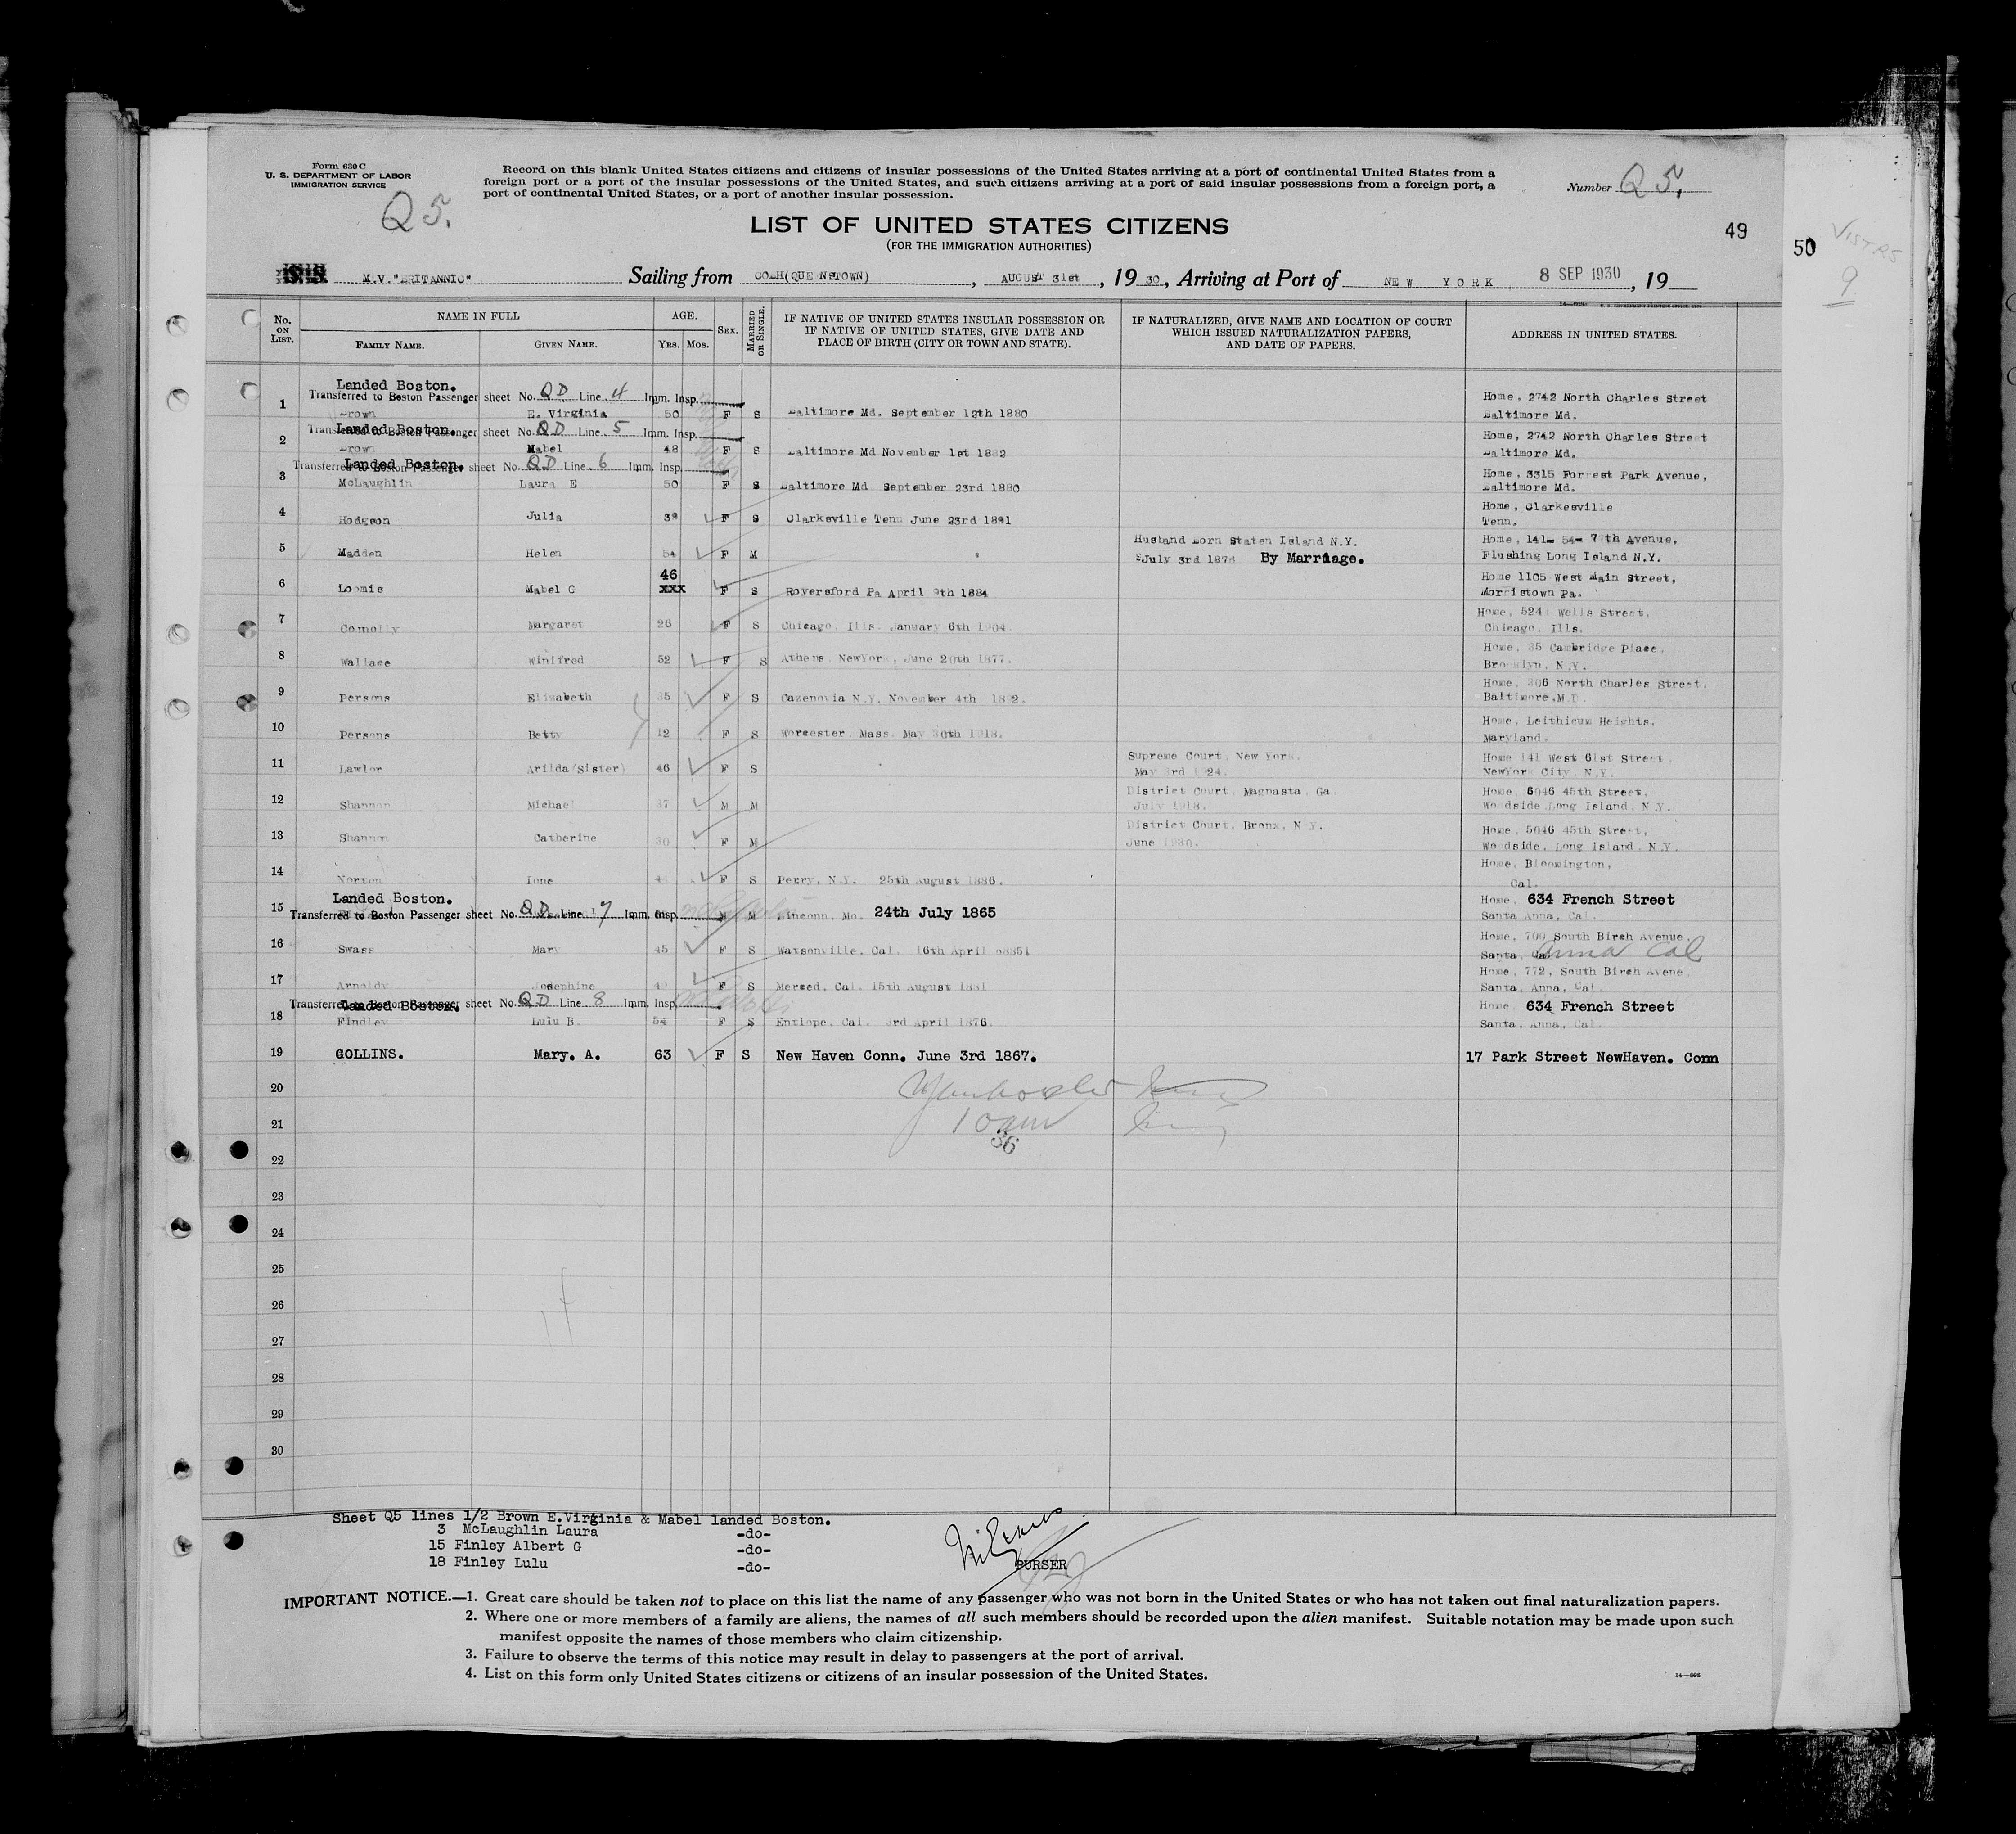 Form 630 C
U. S. DEPARTMENT OF LABOR
IMMIGRATION SERVICE
Q 5.
Record on this blank United States citizens and citizens of insular possessions of the United States arriving at a port of continental United States from a
foreign port or a port of the insular possessions of the United States, and such citizens arriving at a port of said insular possessions from a foreign port, a
port of continental United States, or a port of another insular possession.
Number Q 5.
LIST OF UNITED STATES CITIZENS
(FOR THE IMMIGRATION AUTHORITIES)
49
50
9
M.V."BRITANNIC" Sailing from COBH(QUEENSTOWN), AUGUST 31st, 19 30, Arriving at Port of NEW YORK 8 SEP 1930, 19
No. ON LIST.
NAME IN FULL
FAMILY NAME.
GIVEN NAME.
AGE.
YRS. MOS.
SEX.
MARRIED OR SINGLE.
IF NATIVE OF UNITED STATES INSULAR POSSESSION OR
IF NATIVE OF UNITED STATES, GIVE DATE AND
PLACE OF BIRTH (CITY OR TOWN AND STATE).
IF NATURALIZED, GIVE NAME AND LOCATION OF COURT
WHICH ISSUED NATURALIZATION PAPERS,
AND DATE OF PAPERS.
ADDRESS IN UNITED STATES.
Landed Boston.
Transferred to Boston Passenger sheet No. QD Line 4 Imm. Insp. Home, 2742 North Charles Street
1 Brown E. Virginia 50 F S Baltimore Md. September 12th 1880 Baltimore Md.
Landed Boston.
Transferred to Boston Passenger sheet No. QD Line 5 Imm. Insp. Home, 2742 North Charles Street
2 Brown Mabel 48 F S Baltimore Md November 1st 1882 Baltimore Md.
Landed Boston.
Transferred to Boston Passenger sheet No. QD Line 6 Imm. Insp. Home, 3315 Forrest Park Avenue,
3 McLaughlin Laura E 50 F S Baltimore Md September 23rd 1880 Baltimore Md.
4 Hodgson Julia 39 F S Clarksville Tenn June 23rd 1891 Home, Clarkesville
Tenn.
Husband Born Staten Island N.Y. Home, 141- 54- 7th Avenue,
5 Madden Helen 54 F M July 3rd 1878 By Marriage. Flushing Long Island N.Y.
46 Home 1105 West Main Street,
6 Loomis Mabel C xxx F S Royersford Pa April 9th 1884 Morristown Pa.
Home, 524 Wells Street,
7 Margaret 26 F S Chicago, Ills. January 6th 1904. Chicago, Ills.
Home, 35 Cambridge Place,
8 Wallace Winifred 52 F S Athens, NewYork, June 20th 1877. Brooklyn, N.Y.
Home, 306 North Charles Street,
9 Persons Elizabeth 35 F S Cazenovia N.Y. November 4th Baltimore.M.D.
Home, Leithicum Heights,
10 Persons Betty 12 F S Worcester, Mass. May 30th 1918. Maryland.
Supreme Court, New York. Home 141 West 61st Street,
11 Lawlor Arilda(Sister) 46 F S May 3rd 1924. NewYork City, N.Y.
District Court, Magnasta, Ga. Home, 6046 45th Street,
12 Shannon Michael 37 M M July 1918. Woodside Long Island, N.Y.
District Court, Bronx, N.Y. Home, 5046 45th Street,
13 Shannon Catherine 30 F M June 1930. Woodside, Long Island, N.Y.
Home, Bloomington,
14 Norton Ione F S Perry, N.Y. 25th August 1886. Cal.
Landed Boston. Home, 634 French Street
15 Transferred to Boston Passenger sheet No. QD Line 7 Imm. Insp. M M Linconn, Mo. 24th July 1865 Santa Anna, Cal.
Home, 700 South Birch Avenue,
16 Swass Mary 45 F S Watsonville, Cal. 16th April Santa, Anna Cal
Home, 772, South Birch Avene,
17 Arnoldy Josephine F S Merced, Cal. 15th August 1881 Santa, Anna, Cal.
Landed Boston.
Transferred to Boston Passenger sheet No. QD Line 8 Imm. Insp. Home, 634 French Street
18 Findley Lulu B. 54 F S Entlope, Cal. 3rd April 1876. Santa, Anna, Cal.
19 COLLINS. Mary. A. 63 F S New Haven Conn. June 3rd 1867. 17 Park Street NewHaven. Conn
20
21
36
22
23
24
25
26
27
28
29
30
Sheet Q5 lines 1/2 Brown E.Virginia & Mabel landed Boston.
3 McLaughlin Laura -do-
15 Finley Albert G -do-
18 Finley Lulu -do-
PURSER
IMPORTANT NOTICE.—1. Great care should be taken not to place on this list the name of any passenger who was not born in the United States or who has not taken out final naturalization papers.
2. Where one or more members of a family are aliens, the names of all such members should be recorded upon the alien manifest. Suitable notation may be made upon such
manifest opposite the names of those members who claim citizenship.
3. Failure to observe the terms of this notice may result in delay to passengers at the port of arrival.
4. List on this form only United States citizens or citizens of an insular possession of the United States.